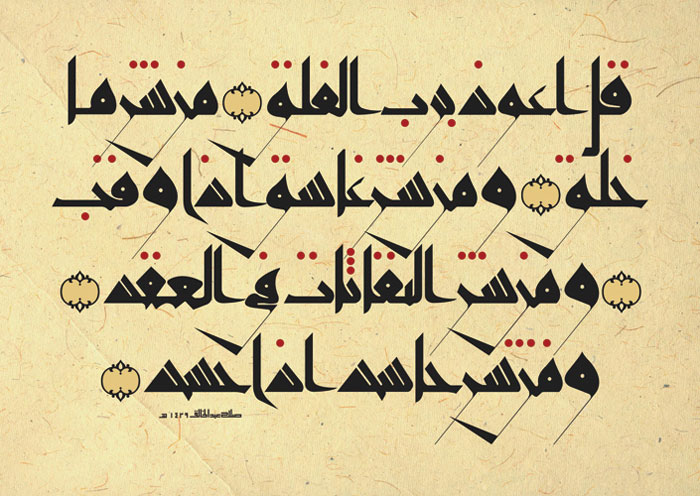 قل اعوذ برب الفلق ۝ من شر ما
خلق ۝ ومن شر غاسق اذا وقب
۝ ومن شر النفاثات في العقد ۝
ومن شر حاسد اذا حسد ۝
صلاح عبدالخالق ١٤٢٩ هـ